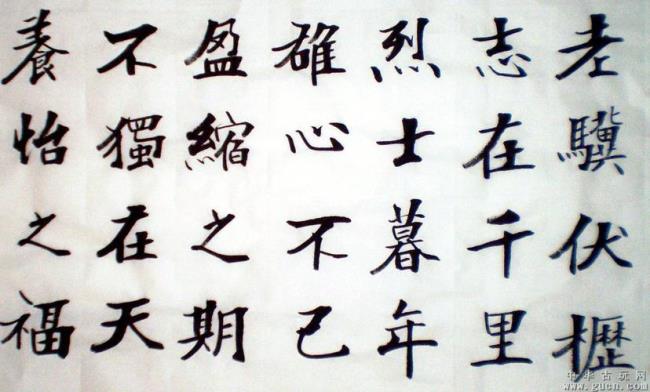 老驥伏櫪
志在千里
烈士暮年
雄心不已
盈縮之期
不獨在天
養怡之福
中华古玩网
www.gucn.com